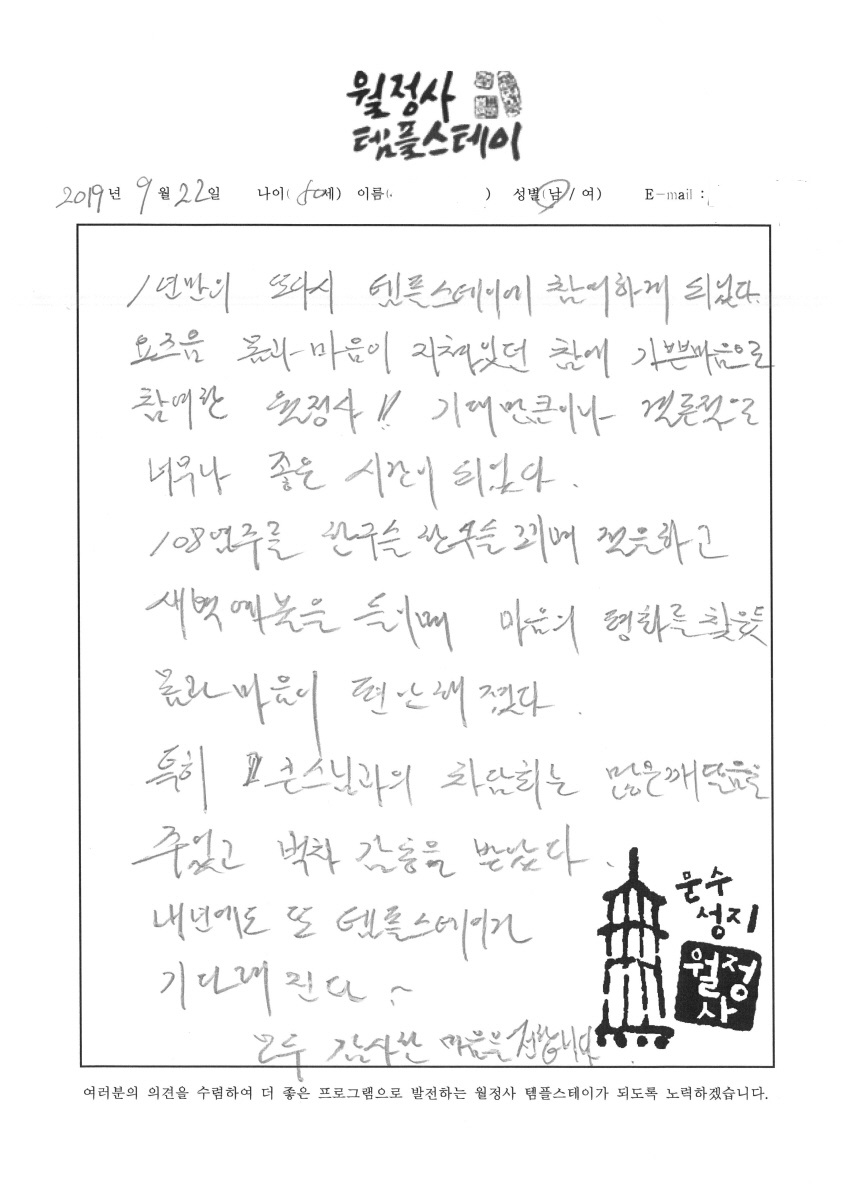 월정사
템플스테이
2019년 9월 22일 나이( 50세) 이름( ) 성별(남 / 여) E-mail :
1년만의 또다시 템플스테이에 참여하게 되었다.
요즈음 몸과 마음이 지쳐있던 참에 기쁜마음으로
참여한 월정사!! 기대만큼이나 결론적으로
너무나 좋은 시간이 되었다.
108염주를 한구슬 한구슬 꿰며 절을하고
새벽예불을 들이며 마음의 평화를 찾은듯
몸과 마음이 편안해 졌다.
특히 큰스님과의 차담회는 많은깨달음을
주었고 벅찬 감동을 받았다.
내년에도 또 템플스테이가
기다려 진다 ~
모두 감사한 마음을 전합니다.
문수
성지
월정
사
여러분의 의견을 수렴하여 더 좋은 프로그램으로 발전하는 월정사 템플스테이가 되도록 노력하겠습니다.